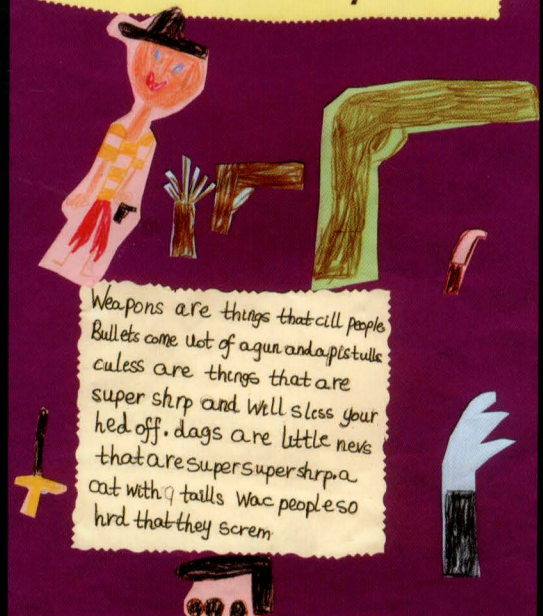 Weapons are things that cill people
Bullets come uot of a gun and a pistulls
culess are things that are
super shrp and will sliss your
hed off. dags are little nevs
that are super super shrp. a
cat with 9 taills wac people so
hrd that they screm